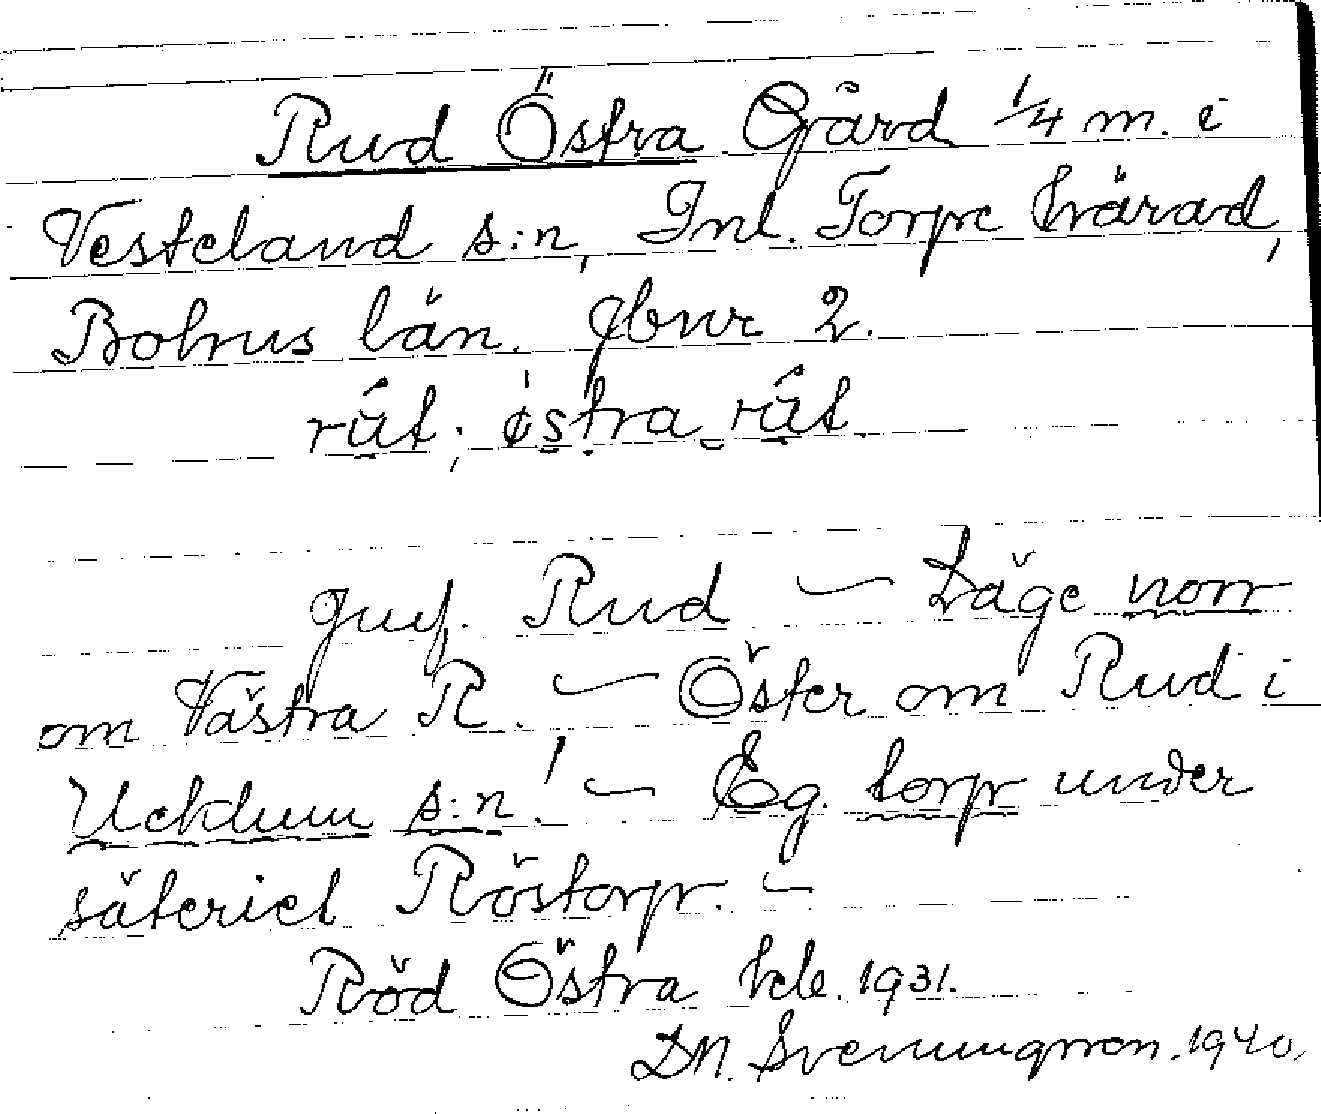 Rud Östra Gård 1/4 m. i
Vesteland s:n, Inl. Torpe härad,
Bohus län. jbnr 2.
rät; östra rät
juf. Rud — Läge norr
om Västra R. — Öster om Rud i
Ucklum s:n! — Eg. torp under
säteriet Röstorp. —
Röd Östra kb. 1931.
D.N. Svenungsson. 1940.